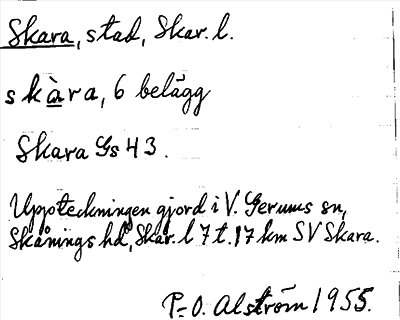 Skara, stad, Skar. l.
skàra, 6 belägg
Skara Gs 43.
Uppteckningen gjord i V. Gerums sn,
Skånings hd, Skar. l 7 t. 17 km SV Skara.
P.-O. Alström 1955.